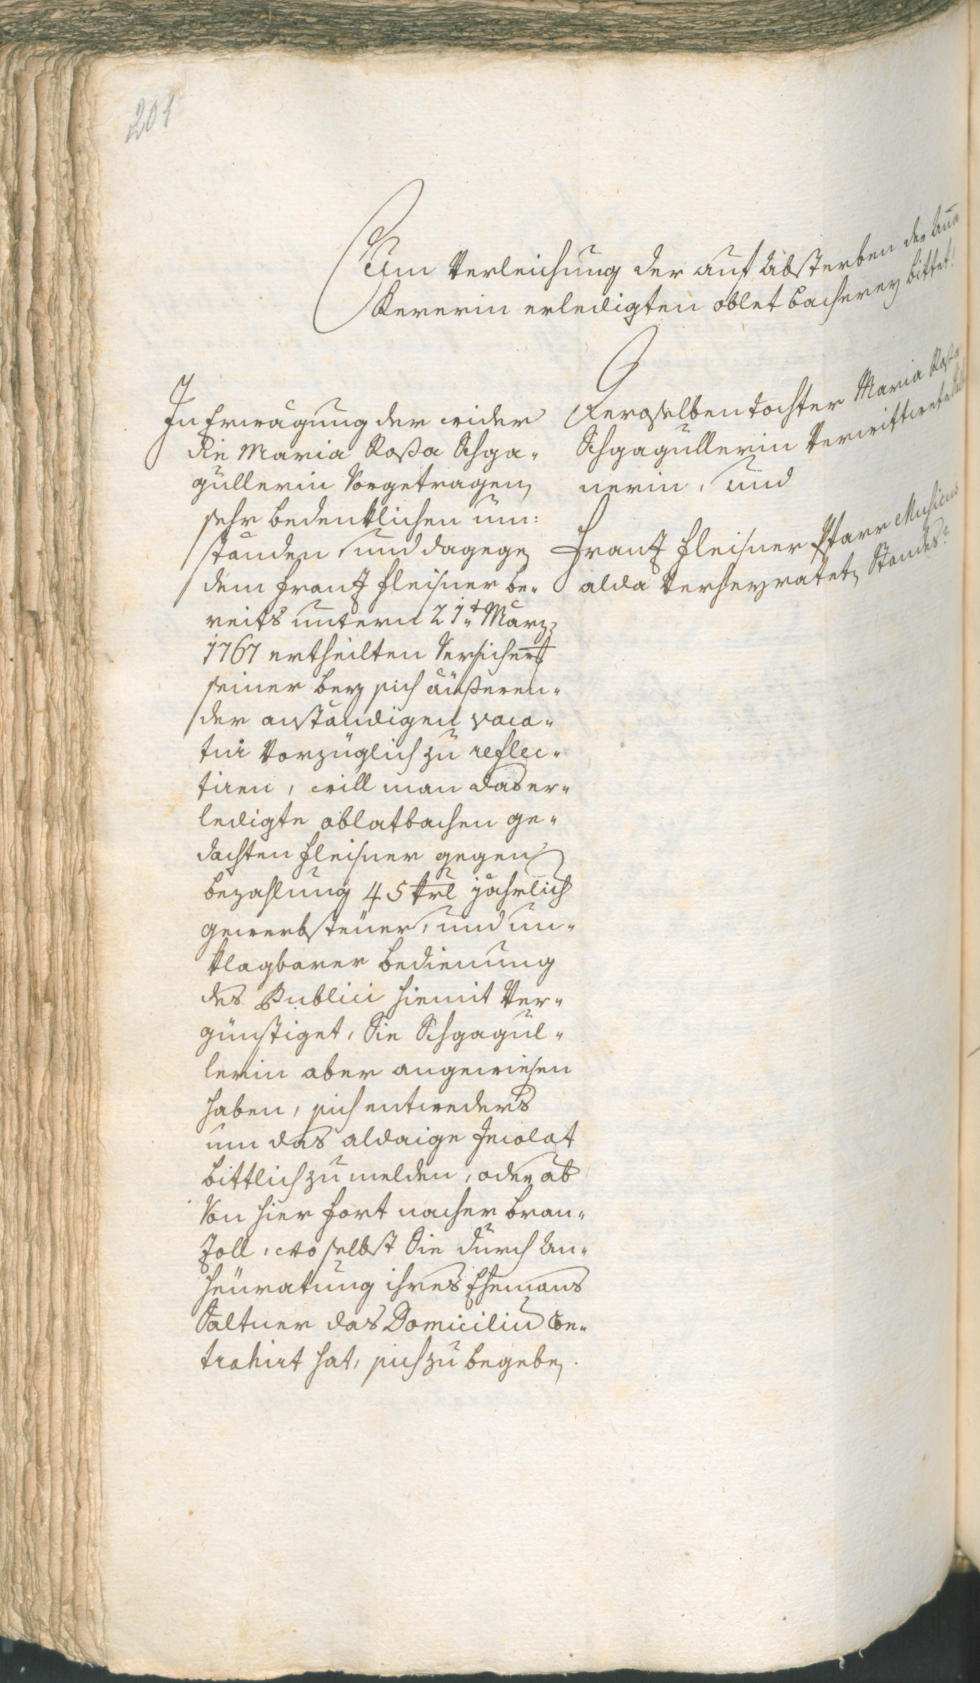 201
Um Verleichung der auf Absterben der Aña
Kererin erledigten oblet bacherey bittet!
Deroselben tochter Maria Rosa
Schgagullerin
nerin, und
Frantz fleisner Pfarr Musicus
alda verheyrateten Standes?
In Erwägung der wider
die Maria Rosa Schga-
gullerin Vorgetragen,
sehr bedenklichen um:
ständen, und dagege,
dem frantz fleisner be-
reits unterm 21t März
1767 ertheilten Versicherg
seiner bey sich äußeren-
der anständigen vaca-
tur Vorzüglich zu reflec-
tiren, will man das er-
ledigte oblatbachen ge-
dachten fleisner gegen
bezahlung 45 Krl jährlich
gewerbsteuer, und un-
klagbarer bedienung
des Publici hiemit Ver-
günstiget, Die Schgagul-
lerin aber angewiesen
haben, sich entweders
um das aldaige Incolat
bittlich zu melden, oder ab
Von hier fort nacher bran-
zoll, wo selbst Sie durch An-
heuratung ihres Ehemans
Saltner das Domiciliũ con-
trahirt hat, sich zu begebe,.